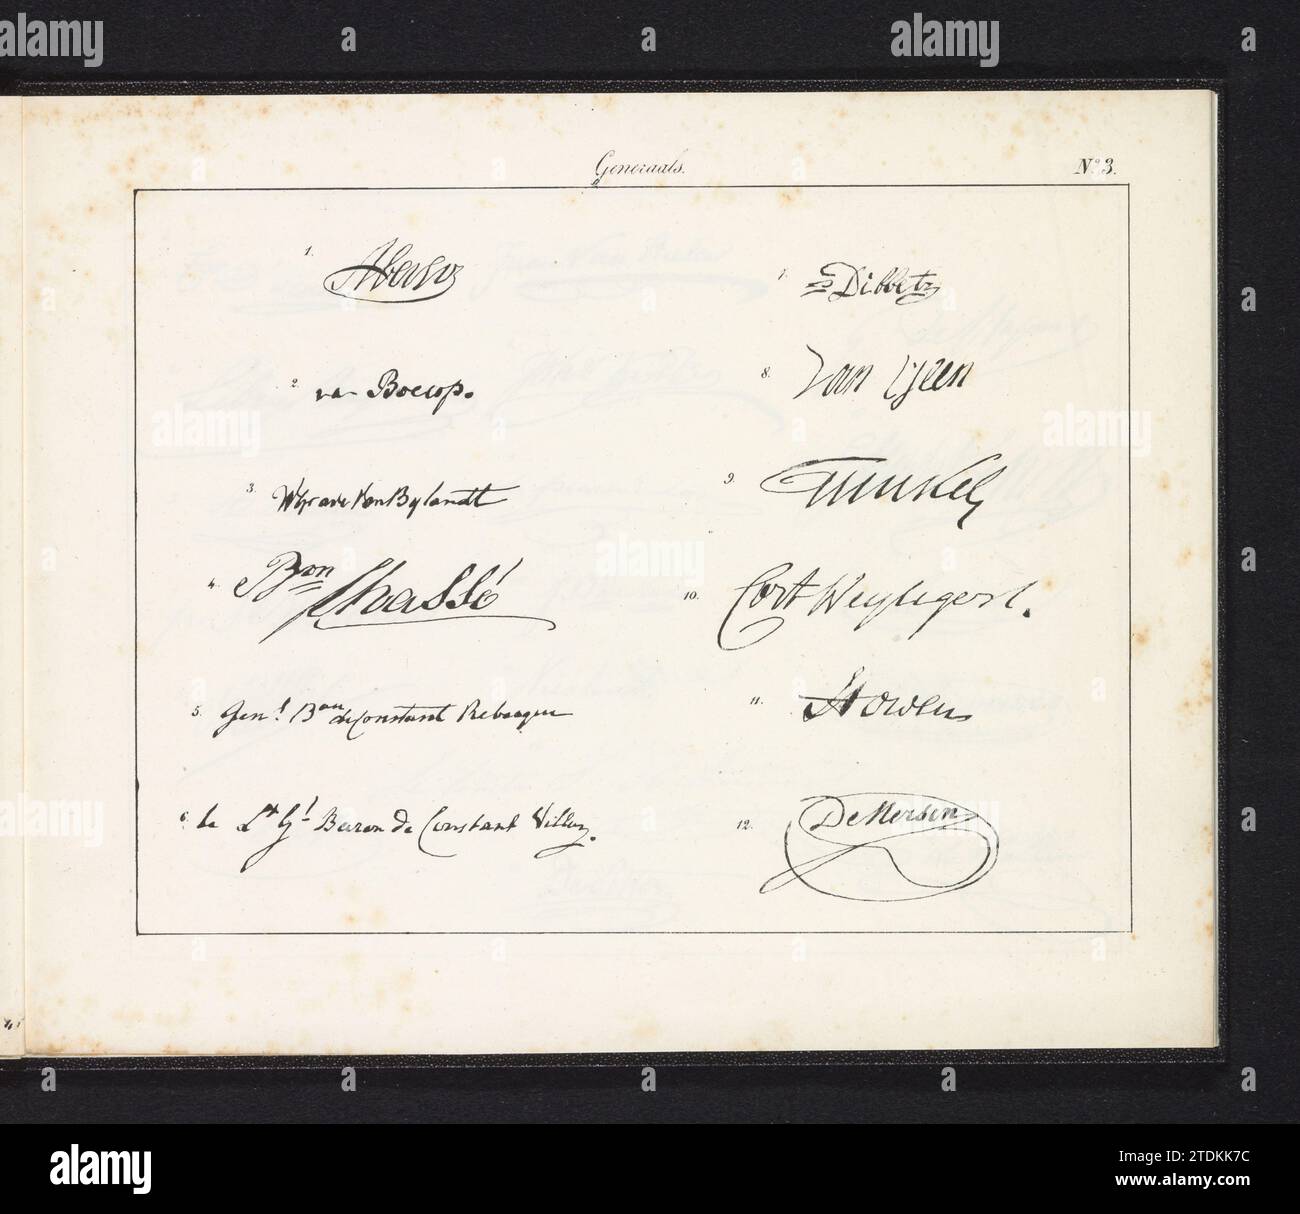 Generaals.
No. 3.
1.
2. van Boecop.
3. W Grave Van Bylandt
4. Bon Chassé
5. Genl. Bon de Constant Rebecque
6. le Lt Gl Baron de Constant Villars
7. Dibbetz
8. Van Geen
9.
10. Cort Heyligers.
11. Howen
12. De Kersen
alamy
Image ID: 2TDKK7C
www.alamy.com